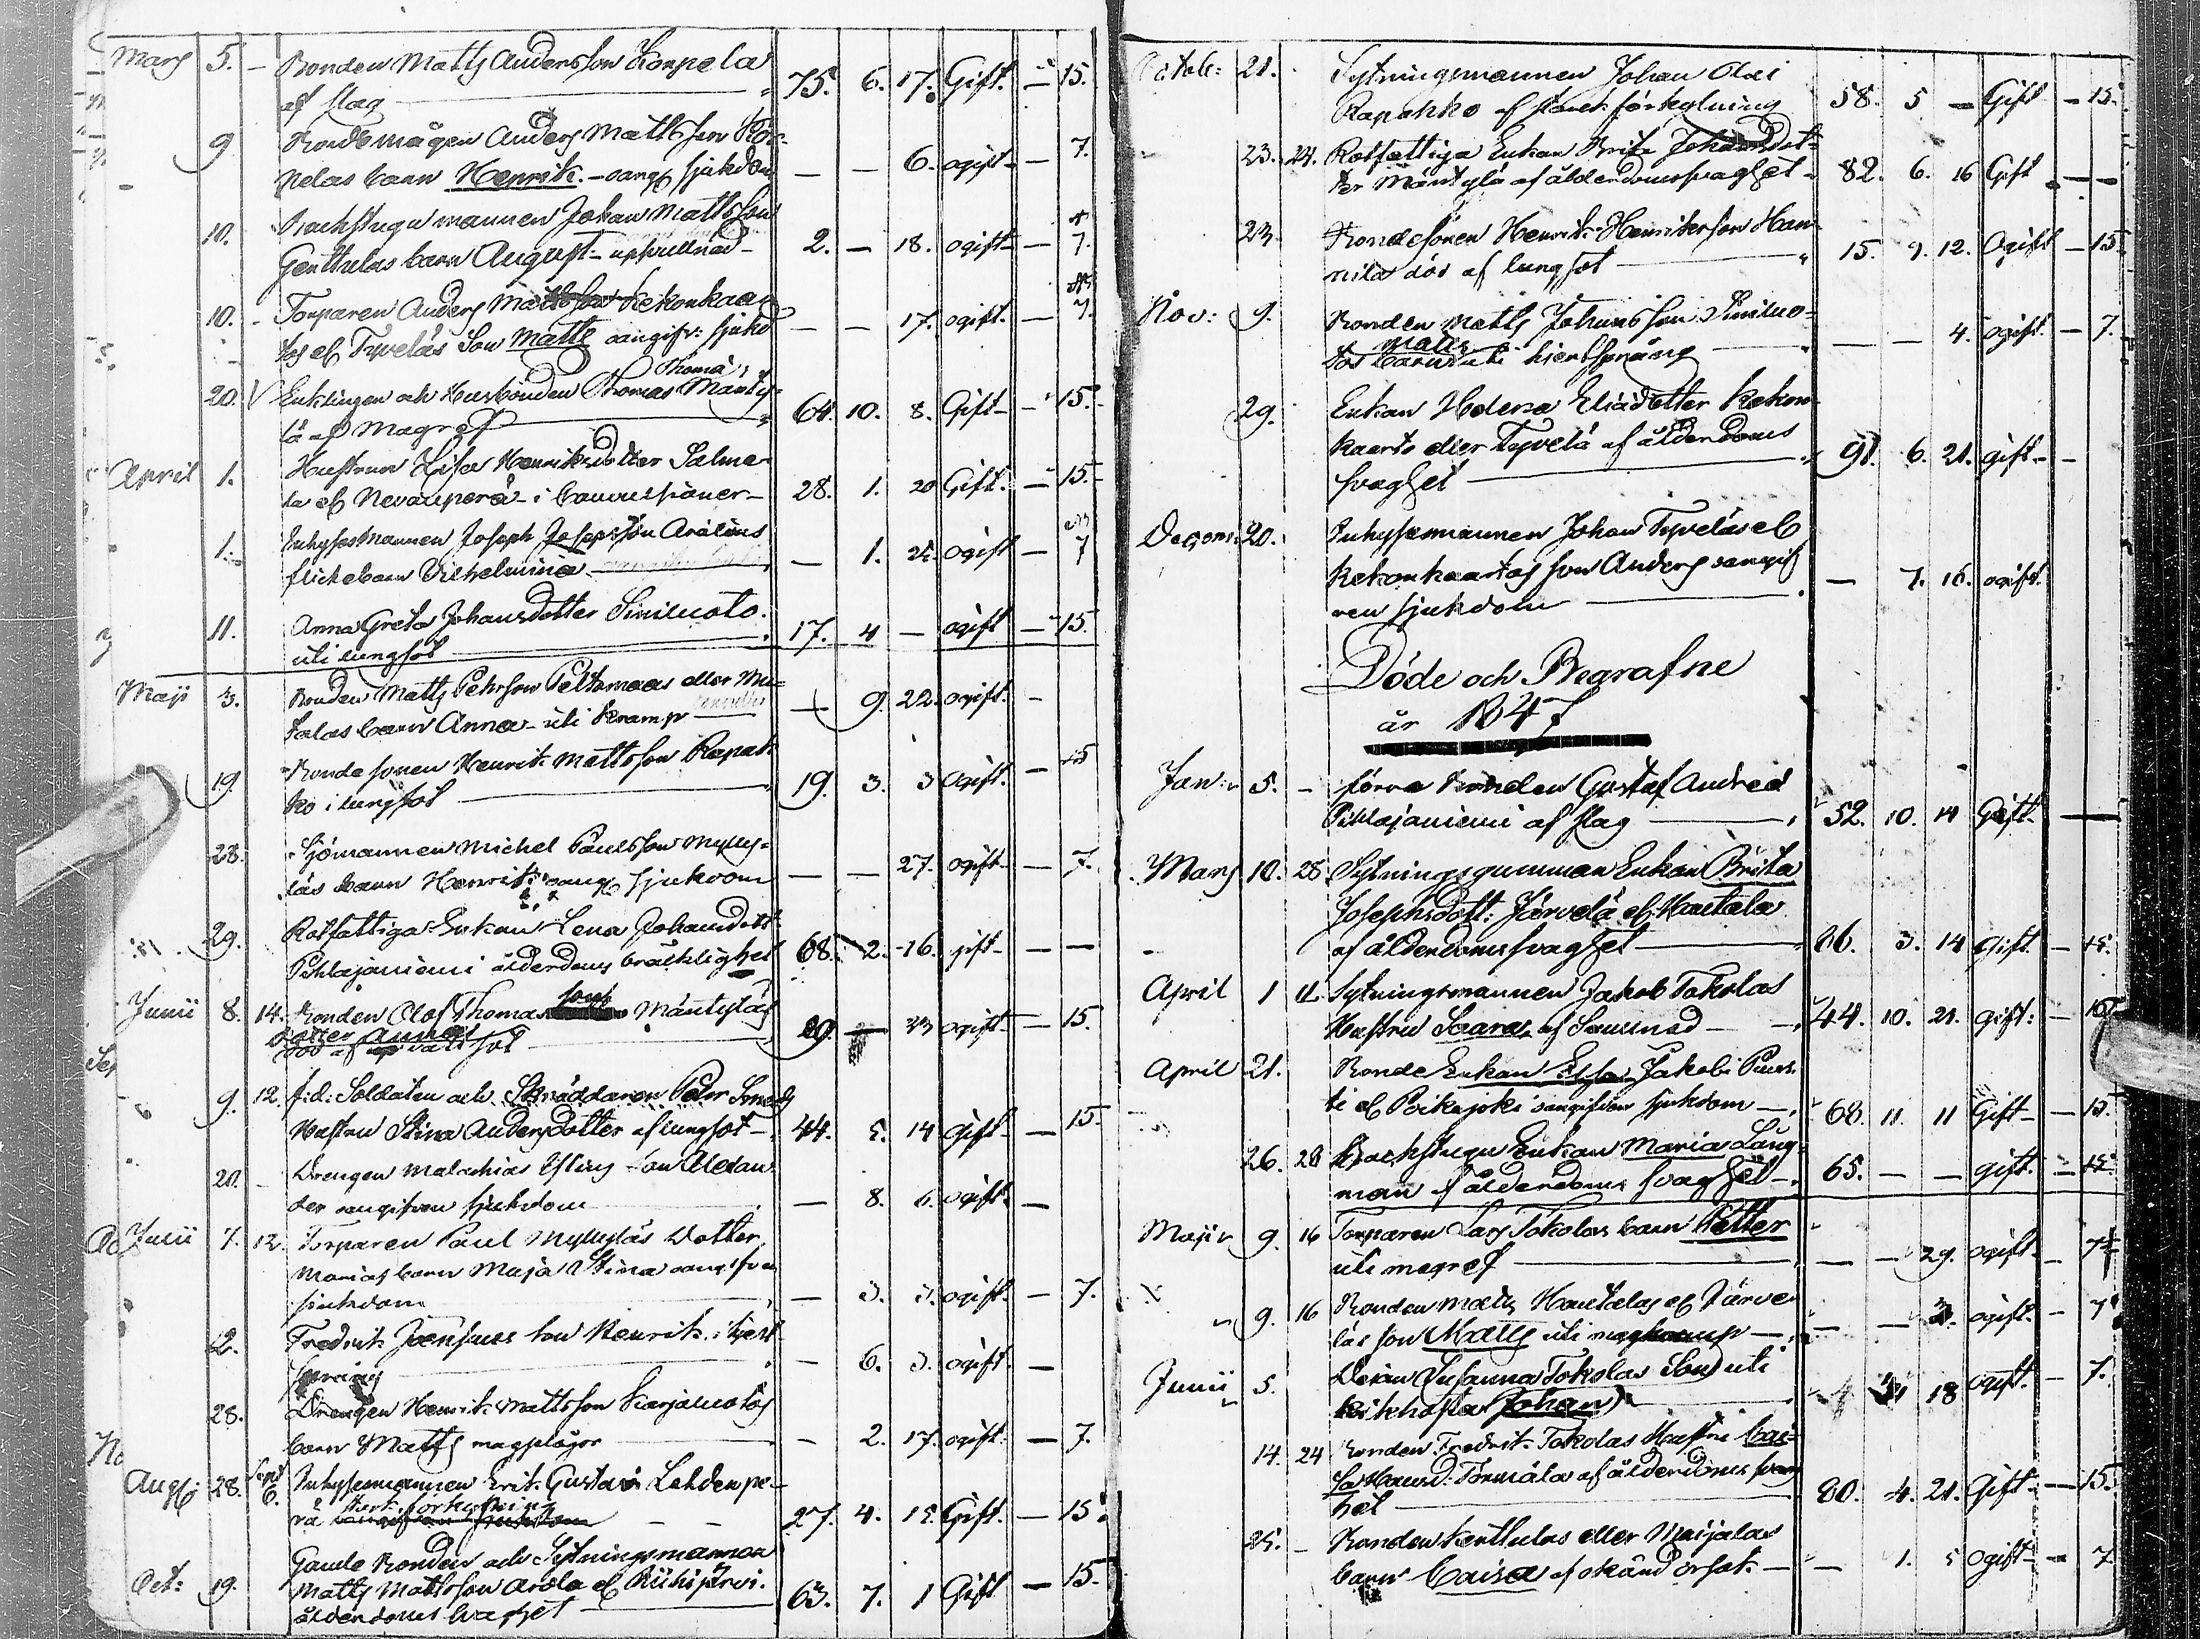 Mars 5. – Bonden Matts Andersson Korpela
af slag 75. 6. 17. Gift. – 15.
9 Bondemågen Anders Mattsson Kor-
pelas barn Henrik. – oang. sjukdom – – 6. ogift – 7.
10. Backstugumannen Johan Mattsson
barn August – 2. – 18. ogift – 7.
10. – Torparen Anders Mattsson Kekonkaar-
tos el Tyveläs Son Matts oangifv: sjukd – – 17. ogift. – 7.
Thomæ
20. Enklingen och Husbonden Thomas Mänty-
lä af Magref 64. 10. 8. Gift – 15.
April 1. Hustrun Lisa Henriksdotter Salme-
la el Nevanperä – i barns 28. 1. 20 Gift. – 15.
1. Inhysesmannen Joseph Josepsson
flickebarn Vilhelmina – 1. ogift – 7
11. Anna Greta Johansdotter Siniluoto.
uti lungsot 17. 4 – ogift – 15.
Maji 3. Bonden Matts Pehrsson Peltomaas eller
barn Anna – uti Kramp – 9. 22. ogift. –
19. Bondesonen Henrik Mattsson Rapak-
ko i lungsot 19. 3. 3 Ogift. – 15
28. Sjömannen Michel Paulsson Mylly-
läs barn Henrik oang sjukdom – – 27. ogift – 7.
29. Rotfattiga Enkan Lena Johansdott
Pihlajaniemi ålderdoms bräcklighet 68. 2. 16. gift – – –
Junii 8. 14. Bonden Olof Thomas sons Mäntyläs
dotter Anna
död af vattsot 29. – 23 ogift – 15.
9. 12. f.d. Soldaten och Skräddaren Petter
Hustru Stina Andersdotter af lungsot – 44. 5. 14 Gift – 15.
20. – Drengen Malachias son Alexan-
der oangifven sjukdom – 8. 6. ogift –
Julii 7. 12. Torparen Paul Mylyläs Dotter
Marias barn Maja Stina oangifven
sjukdom – 3. 3. ogift. – 7.
12. Fredrik son Henrik i hjert
språng – 6. 3. ogift. –
28. Drengen Henrik Mattsson Karjaluotos
barn Matts magplågor – 2. 17. ogift – 7.
Aug: 28. Sept 6. Inhysemannen Erik Gustavs Lehdenpe-
rä stark förkylning 27. 4. 15. Gift. – 15.
Oct: 19. Gamle Bonden och Sytningsmannen
Matts Mattsson Arola el
ålderdoms svaghet 63. 7. 1 Gift – 15.
Octob: 21. Sytningsmannen Johan Olai
Rapakko af stark förkylning 58. 5 – Gift – 15.
23. 24. Rotfattiga Enkan Brita Johansdot-
ter Mäntylä af ålderdomssvaghet – 82. 6. 16 Gift – –
23. Bondesonen Henrik Henriksson Han-
nila död af lungsot 15. 9. 12. Ogift – 15.
Nov: 9. Bonden Matts Johansson Siniluo-
Matts
tos barn uti hjertsprång – – 4. ogift – 7.
29. Enkan Helena Eliædotter Kekon-
kaarto eller Tyvelä af ålderdoms
svaghet 91. 6. 21. gift –
Decem: 20. Inhysesmannen Johan Tyveläs el
Kekonkaartos son Anders oangif
ven sjukdom – 7. 16. ogift.
Döde och Begrafne
år 1847
Jan: 5. – förra Bonden Gustaf Andreæ
Pihlajaniemi af slag 52. 10. 14 Gift –
Mars 10. 28 Sytningsgumman Enkan Brita
Josephsdott: Järvelä el Hautala
af ålderdomssvaghet 86. 3. 14 Gift. – 15.
April 1 11. Sytningsmannen Jakob Tokolas
Hustru Saara, af 44. 10. 21. gift: – 15
April 21. Bonde Enkan Jakobi
el Poikajoki oangifven sjukdom – 68. 11. 11 Gift – 15.
26. 28 Backstugu Enkan Maria Lång-
man af ålderdoms svaghet – 65. – – gift. – 15.
Maji 9. 16 Torparen Lars Tokolas barn Petter
uti magref – – 29. ogift – 7
9. 16 Bonden Matts Hautalas el Järve-
läs son Matts uti – – 3. ogift. – 7
Junii 5. Susanna Tokolas Son uti
kikhosta (Johan) 18 ogift. – 7.
14. 24 Bonden Fredrik Tokolas Hustru Cai-
sa Hansd: Tormälä af ålderdoms svag
het 80. 4. 21. Gift – 15.
25. – Bonden Kerttulas eller Maijalas
barn Caisa af okänd orsak. – – 1. 5 ogift – 7